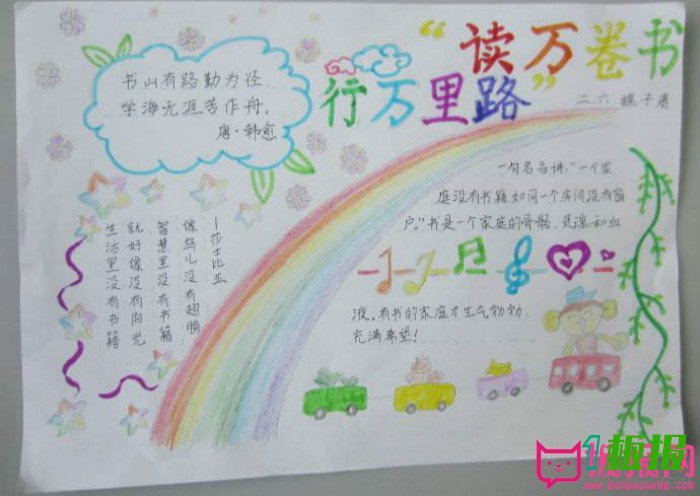 “读万卷书
行万里路”
二、六
书山有路勤为径,
学海无涯苦作舟。
唐·韩愈
一句名言讲:“一个家
庭没有书籍,如同一个房间没有窗
户。”书是一个家庭的骨骼、灵魂和血
液。有书的家庭才生气勃勃、
充满希望!
生活里没有书籍
就好像没有阳光
智慧里没有书籍
像鸟儿没有翅膀
—莎士比亚
板报网
www.banbaowang.com